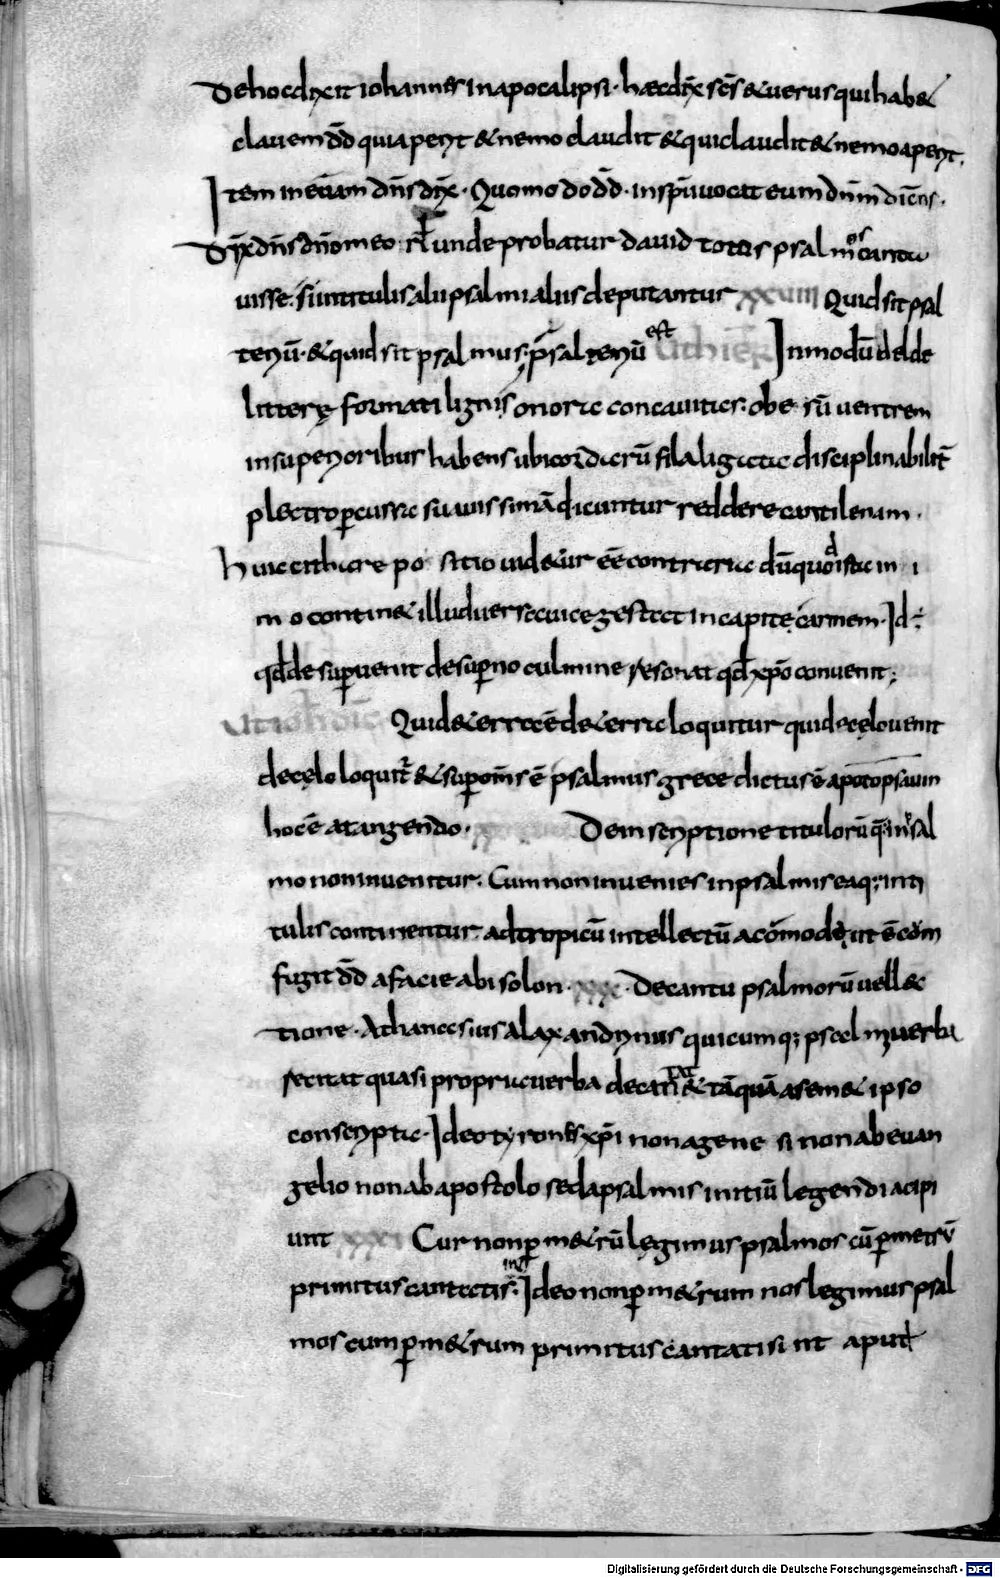 Dehocdixit iohannes inapocalipsi · haecdix̄ sc̄s &uerus quihab&
clauem dd̄ quiaperit &nemo claudit &quiclaudit &nemoaperit.
Item in dn̄s dix̄ · Quomodo dd̄ · insp̄u uocat eum dn̄m dicens ·
Dix̄ dn̄s dn̄omeo · unde probatur dauid totos psalmos canta
uisse · siintitulis alii psalmi aliis deputantur xxviiii Quid sit psal
teriū · &quid sit psalmus · psalteriū est Inmodū delde
litterę formati ligni sonora concauitas · obe sū uentrem
insuperioribus habens ubicordarū fila ligata disciplinabilit̄
plectro ꝑcussa suauissimā dicuntur reddere cantilenam ·
huic citharae po sitio uid&ur eē contraria dū quod ista in i
mo contin& illud uersa uice gestat incapite carmen · Id ÷
qd̄ desuꝑuenit desuꝑno culmine resonat qd̄ xp̄o conuenit ;
Quid &erra ē de&erra loquitur quidecęlo uenit
decęlo loquit̄ &suꝑom̄s ē psalmus grece dictus ē apotopsauin
hoc ē atangendo · Deinscriptione titulorū q̄ inpsal
mo noninuenitur · Cum noninuenies inpsalmis eaq; inti
tulis continentur adtropicū intellectū acōmodę ut ē cōm
fugit dd̄ afacie abisolon · xxx · Decantu psalmorū uellec
tione · Athanasius alaxandrinus quicumq; psal uerba
recitat quasi propria uerba decantat &tāquā asem&ipso
conscripta · Ideo tyrones xp̄i nonagene si nonabeuan
gelio nonabapostolo sedapsalmis initiū legendi acipi
unt xxxi Cur nonꝑm&rū legimus psalmos cū ꝑmetrū
primitus cantatis · Ideo nonꝑm&rum nos legimus psal
mos cum ꝑm&rum primitus cantati si nt aput
Digitalisierung gefördert durch die Deutsche Forschungsgemeinschaft - DFG